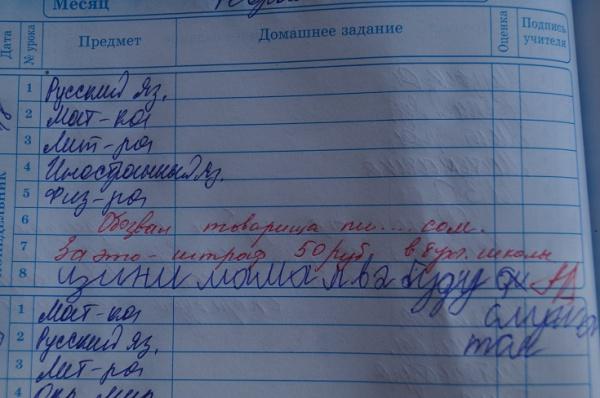 Месяц
Дата № урока Предмет Домашнее задание Оценка Подпись учителя
1 Русский яз.
2 Мат-ка
3 Лит-ра
4 Иностранный яз.
5 Физ-ра
6 Обозвал товарища пи....сом.
7 За это - штраф 50 руб. в бух. школы
8 изини мама я буду
слушат
1 Мат-ка
2 Русский яз.
3 Лит-ра
4 Окр. мир